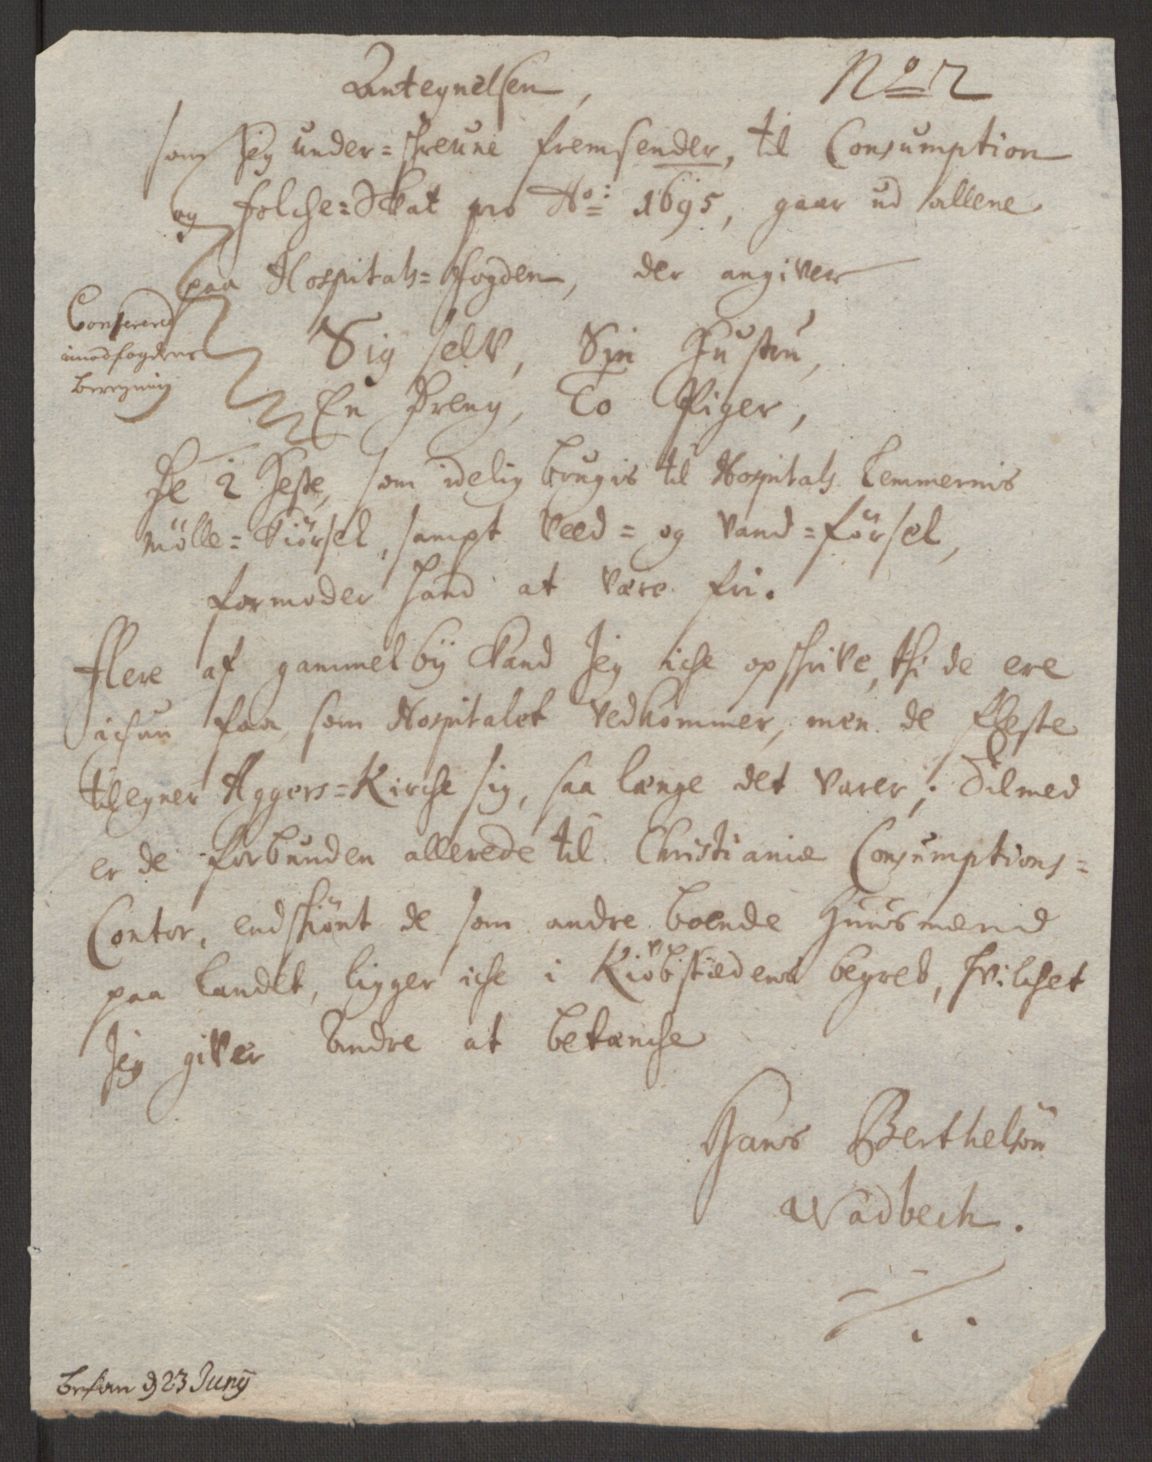 Antegnelsen,
No 2
som Jeg under=schreune fremsender, til Consumption
og folche=Skat pro Ao: 1695, gaar ud allene
paa Hospitals=Fogden, der angiver
Confererit
imod fogdens
beregning
Sig selv, Sin Hustru,
En Dreng, To Piger,
De 2 Heste, som idelig brugis til Hospitals Lemmernis
Mölle=Kiörsel, sampt Veed= og Vand=försel,
formoder hand at være fri.
Flere af gammelbÿ Kand Jeg iche opschrive, thi de ere
ichun faa, som Hospitalet Vedkommer, men de fleste
tilegner Aggers=Kirche sig, saa længe det varer; Dilmed
er de forbunden allerede til Christianiæ Consumptions=
Contor, endskiönt de som andre boende Huusmænd
paa Landet, ligger iche i Kiöbstædens begreb, hvilchet
Jeg giver Andre at betænche
Hans Berthelsön
Wadbech.
d 23 Junÿ